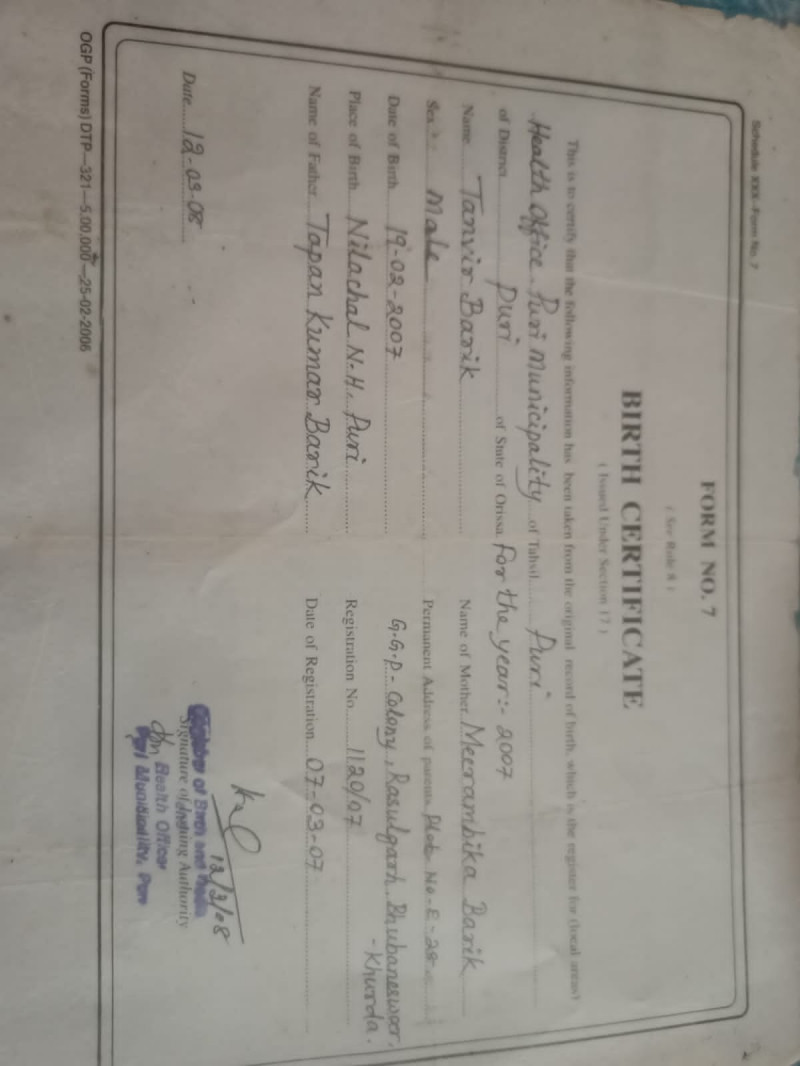 Schedule XXX-Form No. 7
FORM NO. 7
( See Rule 8 )
BIRTH CERTIFICATE
( Issued Under Section 17 )
This is to certify that the following information has been taken from the original record of birth, which is the register for (local areas)
Health Office Puri Municipality of Tahsil Puri
of District Puri of State of Orissa for the year:- 2007
Name Tanvir Barik
Name of Mother Meerambika Barik
Sex Male
Permanent Address of parents Plot No-E-28
G.G.P- Colony, Rasulgarh Bhubaneswar,
-Khurda.
Date of Birth 19-02-2007
Place of Birth Nilachal N.H, Puri
Registration No 1120/07
Name of Father Tapan Kumar Barik
Date of Registration 07-03-07
12/3/08
Signature of Issuing Authority
Health Officer
Puri Municipality, Puri
Date 12-03-08
OGP (Forms) DTP—321—5,00,000—25-02-2006